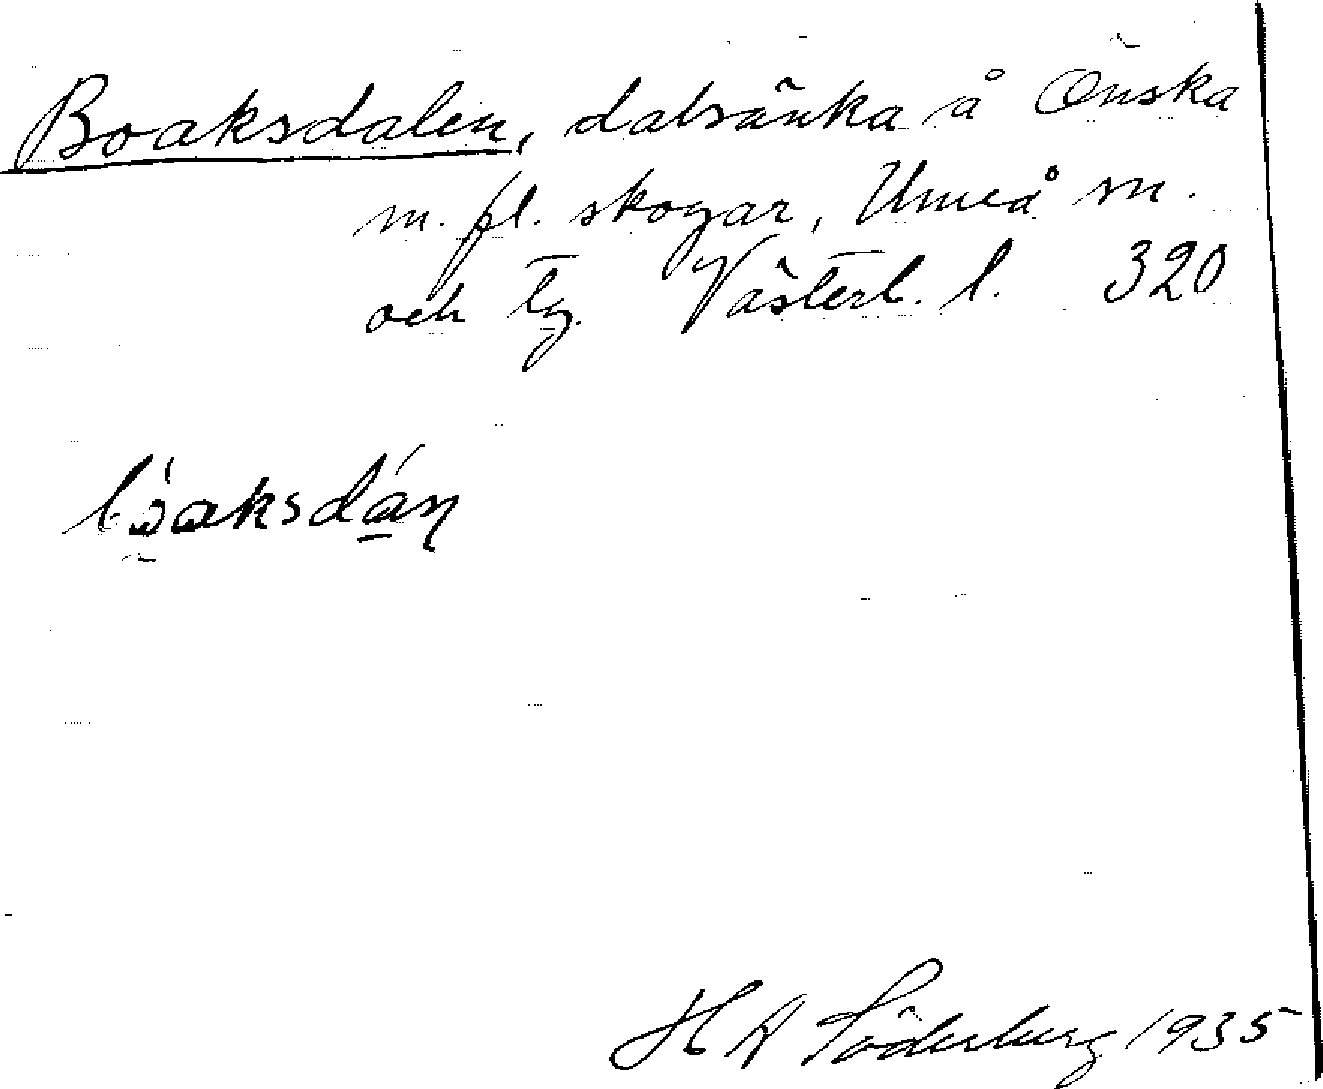 Boaksdalen, dalsänka å Önska
m. fl. skogar, Umeå sn.
och tg. Västerb. l. 320
H A Söderberg 1935